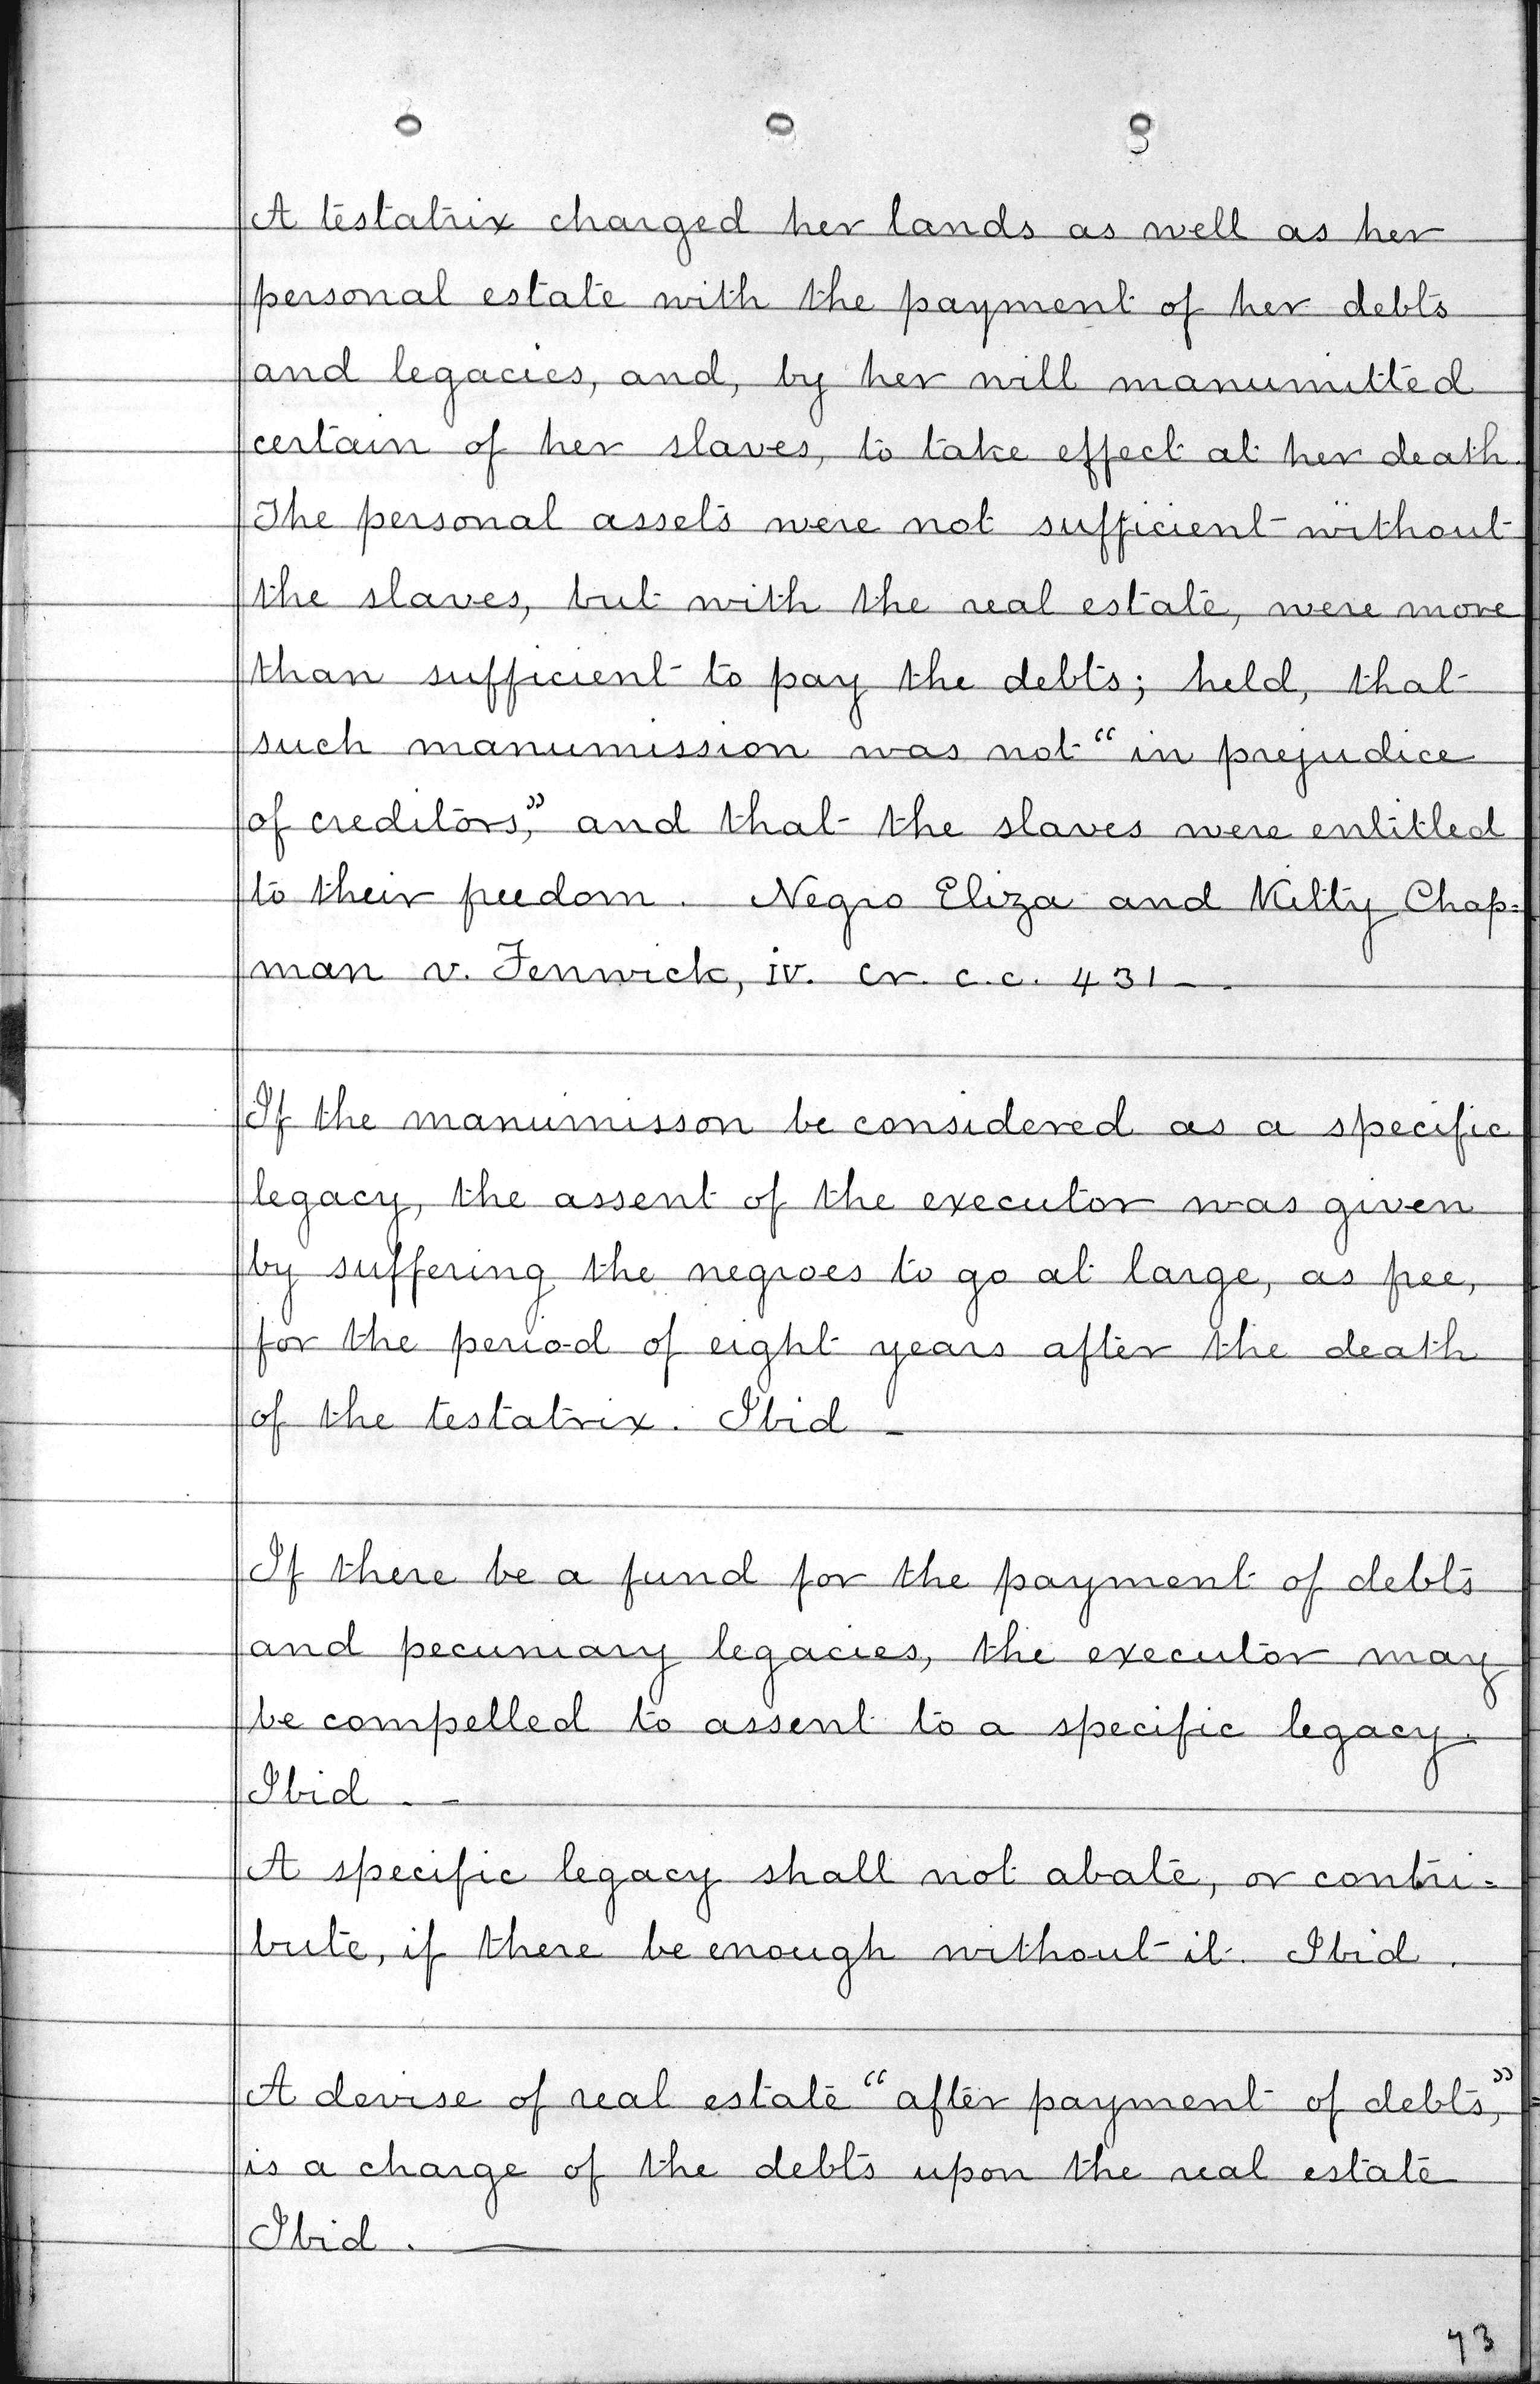 A testatrix charged her lands as well as her
personal estate with the payment of her debts
and legacies, and, by her will manumitted
certain of her slaves, to take effect at her death.
The personal assets were not sufficient without
the slaves, but with the real estate, were more
than sufficient to pay the debts; held, that
such manumission was not “in prejudice
of creditors,” and that the slaves were entitled
to their freedom. Negro Eliza and Kitty Chap=
man v. Fenwick, iv. Cr. c.c. 431 — .
If the manumisson be considered as a specific
legacy, the assent of the executor was given
by suffering the negroes to go at large, as free,
for the period of eight years after the death
of the testatrix. Ibid —
If there be a fund for the payment of debts
and pecuniary legacies, the executor may
be compelled to assent to a specific legacy.
Ibid . —
A specific legacy shall not abate, or contri=
bute, if there be enough without it. Ibid .
A devise of real estate “after payment of debts,”
is a charge of the debts upon the real estate
Ibid . —
73